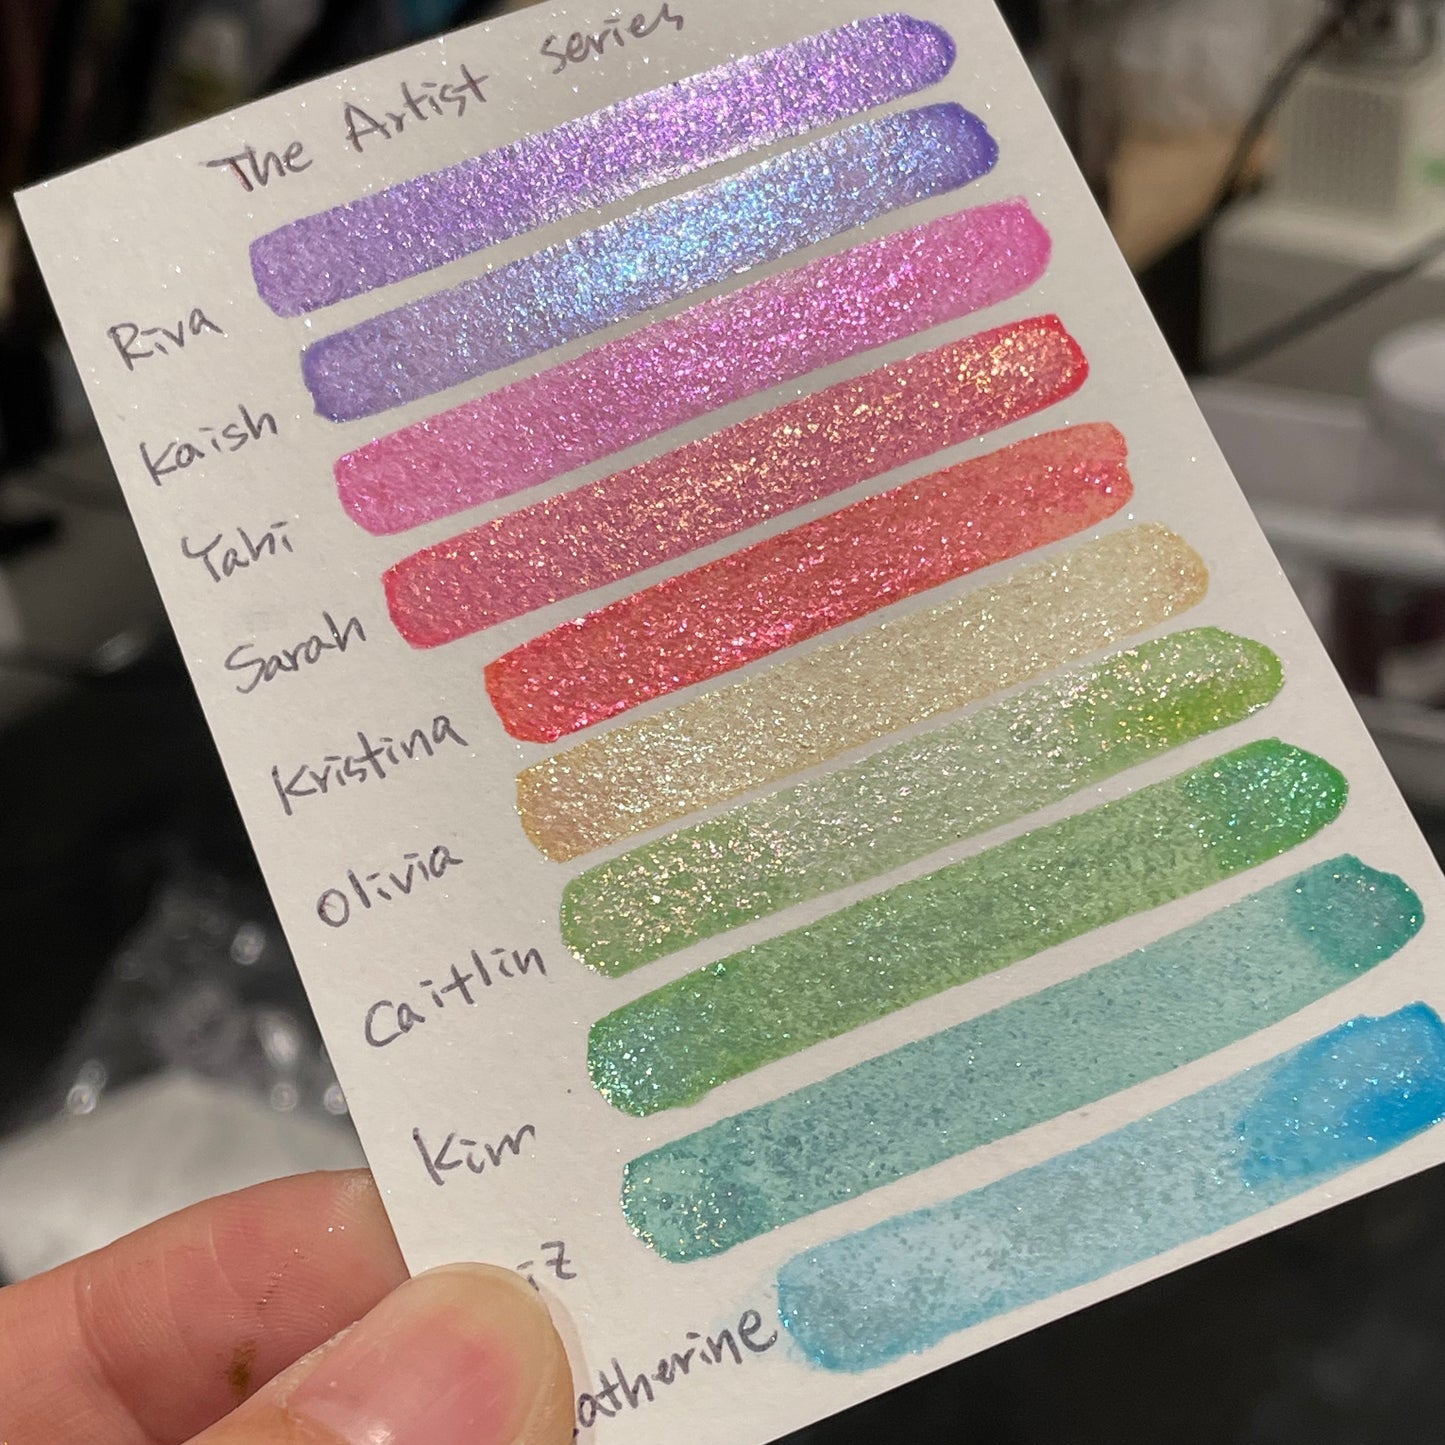 The Artist series
Riva
Kaish
Yahi
Sarah
Kristina
Olivia
Caitlin
Kim
iz
atherine